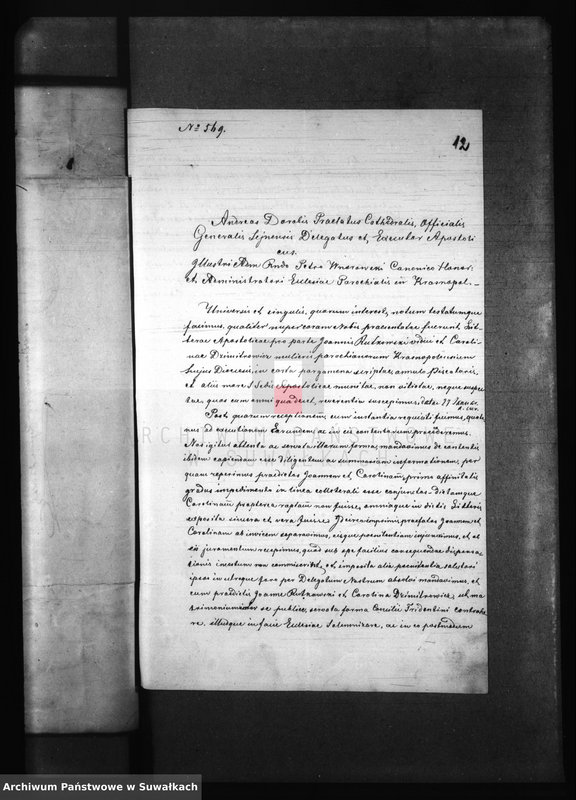 No 569.
12
Andreas Dorobis Praelatus Cathedralis, Officialis
Generalis Sejnensis Delegatus et Executor Apostoli
cus.
Illustri Adm Rndo Petro Wnorowski Canonico Honor:
et Administratori Ecclesiae Parochialis in Krasnopol.
Universis et singulis, quorum interest, notum testatumque
facimus, qualiter nuper coram Nobis praesentatae fuerunt Lit
terae Apostolicae pro parte Joannis Rutkowski vidui et Caroli
nae Dzimitrowicz mulieris parochianorum Krasnopoliensium
hujus Dioecesis, in carta pargamena scriptae, annulo Piscatoris,
et aliis more S Sedis Apostolicae munitae, non vitiatae, neque suspec
tae, quas cum omni qua decet, reverentia suscepimus, datae
a. cur.
Post quarum receptionem, cum instantia requisiti fuimus, quate
nus ad executionem Earundem ac in eis contentorum procederemus.
Nos igitur attenta ac servata illarum forma, mandavimus de contentis
ibidem capiendam esse diligentem ac summariam informationem, per
quam reperimus praedictos Joannem et Carolinam, primo affinitatis
gradus impedimento in linea collaterali esse conjunctos dictamque
Carolinam propterea raptam non fuisse, omniaque in dictis Litteris
exposita sincera et vera fuisse. Idcirco imprimis praefatos Joannem et
Carolinam ab invicem separavimus, eisque poenitentiam injunximus, et ab
eis juramentum recepimus, quod sub spe facilius consequendae dispensa
tionis incestum non commiserint, et imposita alia poenitentia salutari
ipsos in utroque foro per Delegatum Nostrum absolvi mandavimus, et
cum praedictis Joanne Rutkowski et Carolina Dzimitrowicz, ut ma
trimonium inter se publice, servata forma Concilii Tridentini contrahe
re, illudque in facie Ecclesiae solemnizare, ac in eo postmodum
ARCHIWUM
Archiwum Państwowe w Suwałkach